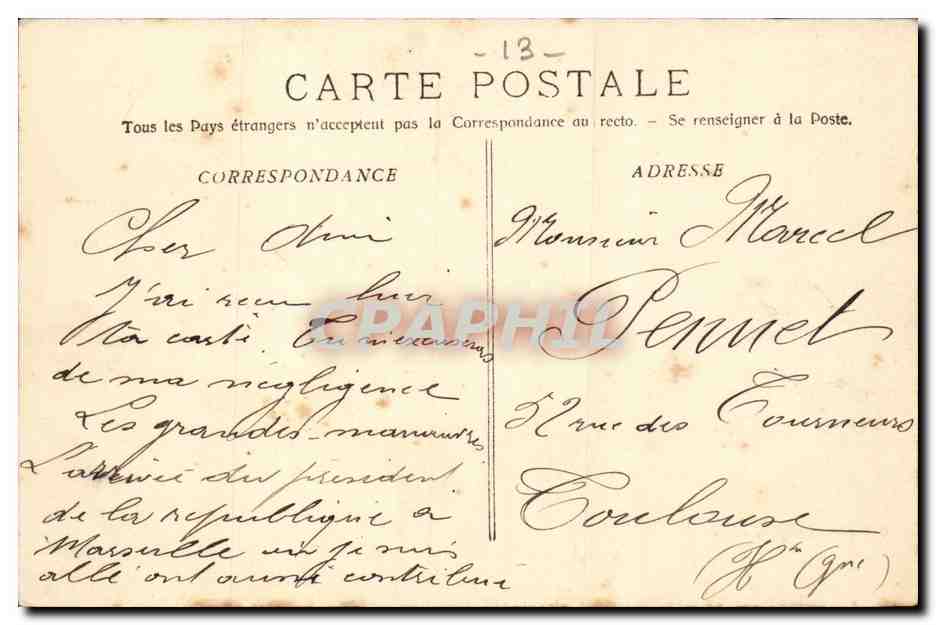 - 13 -
CARTE POSTALE
Tous les Pays étrangers n'acceptent pas la Correspondance au recto. - Se renseigner à la Poste.
CORRESPONDANCE
Cher Ami
J'ai reçu hier
ta carte. Tu m'excuseras
de ma négligence
Les grandes-manœuvres
L'arrivée du president
de la republique a
Marseille ou je suis
allé ont aussi contribué
ADRESSE
Monsieur Marcel
Pennet
52 rue des Tourneurs
Toulouse
(Hte Gne)
CPAPHIL